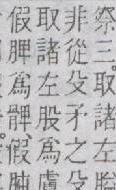 祭三。取諸左
非從殳矛之殳
取諸左股爲
假脾爲髀、假